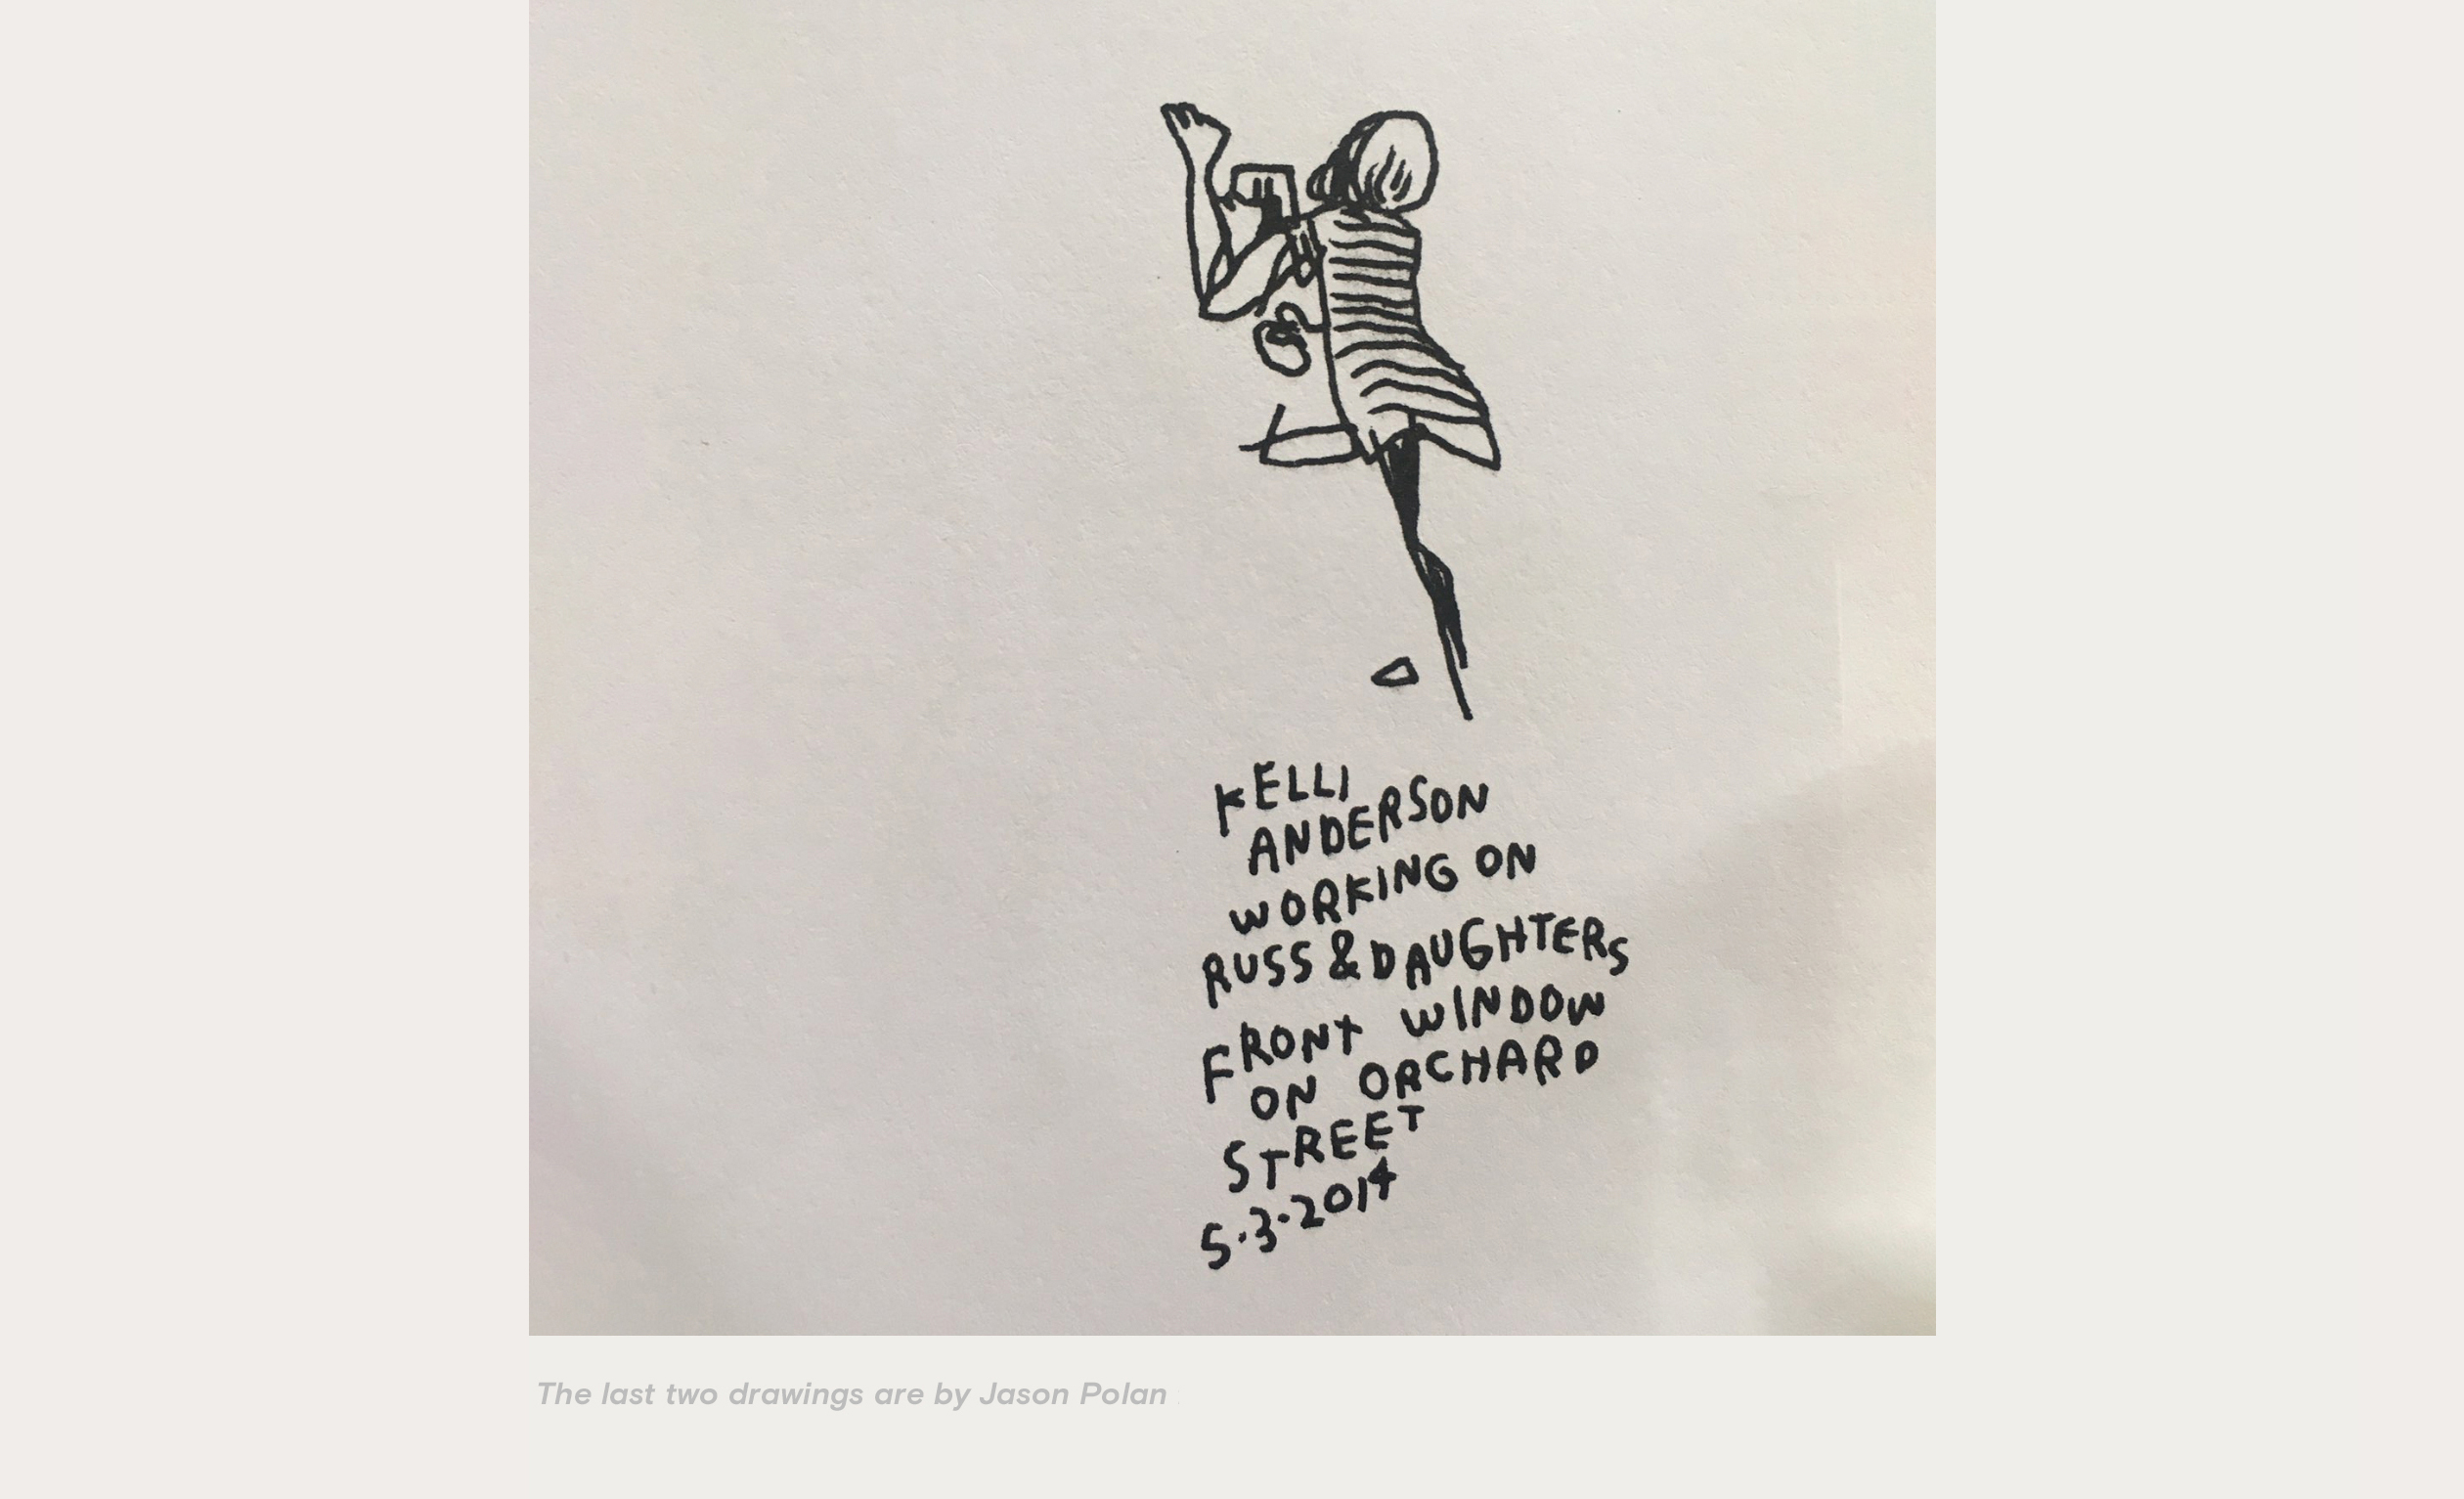 KELLI
ANDERSON
WORKING ON
RUSS & DAUGHTERS
FRONT WINDOW
ON ORCHARD
STREET
5.3.2014
The last two drawings are by Jason Polan